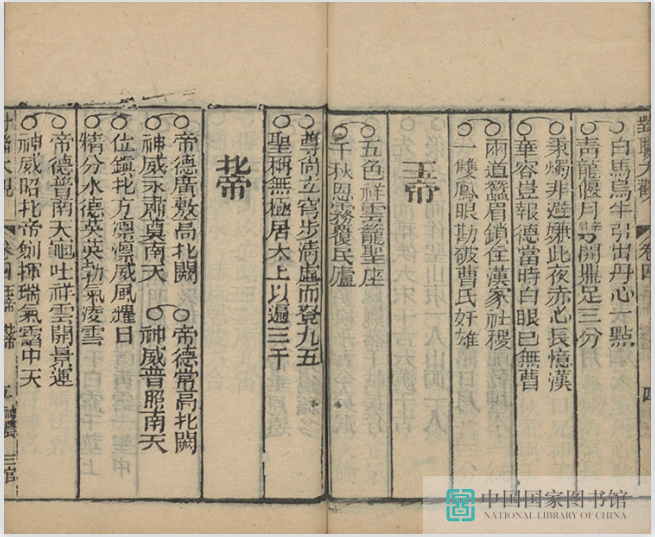 對聯大觀 卷四 四
白馬烏牛引出丹心一點
青龍偃月劈開鼎足三分
秉燭非避嫌此夜赤心長憶漢
華容豈報德當時白眼已無曹
兩道蠶眉鎖住漢家社稷
一雙鳳眼勘破曹氏奸雄
玉帝
五色祥雲籠聖座
千秋恩霧覆民廬
尊尚立穹步清虛而登九五
聖稱無極居太上以遍三千
北帝
帝德廣敷高北闕 帝德常高北闕
神威永肅奠南天 神威普照南天
位鎮北方凛凛威風耀日
精分水德英英勃氣凌雲
帝德普南天龜吐祥雲開景運
神威昭北帝劍揮瑞氣靄中天
對聯大觀 卷四 玉帝 北帝 五 三官
中国国家图书馆
NATIONAL LIBRARY OF CHINA